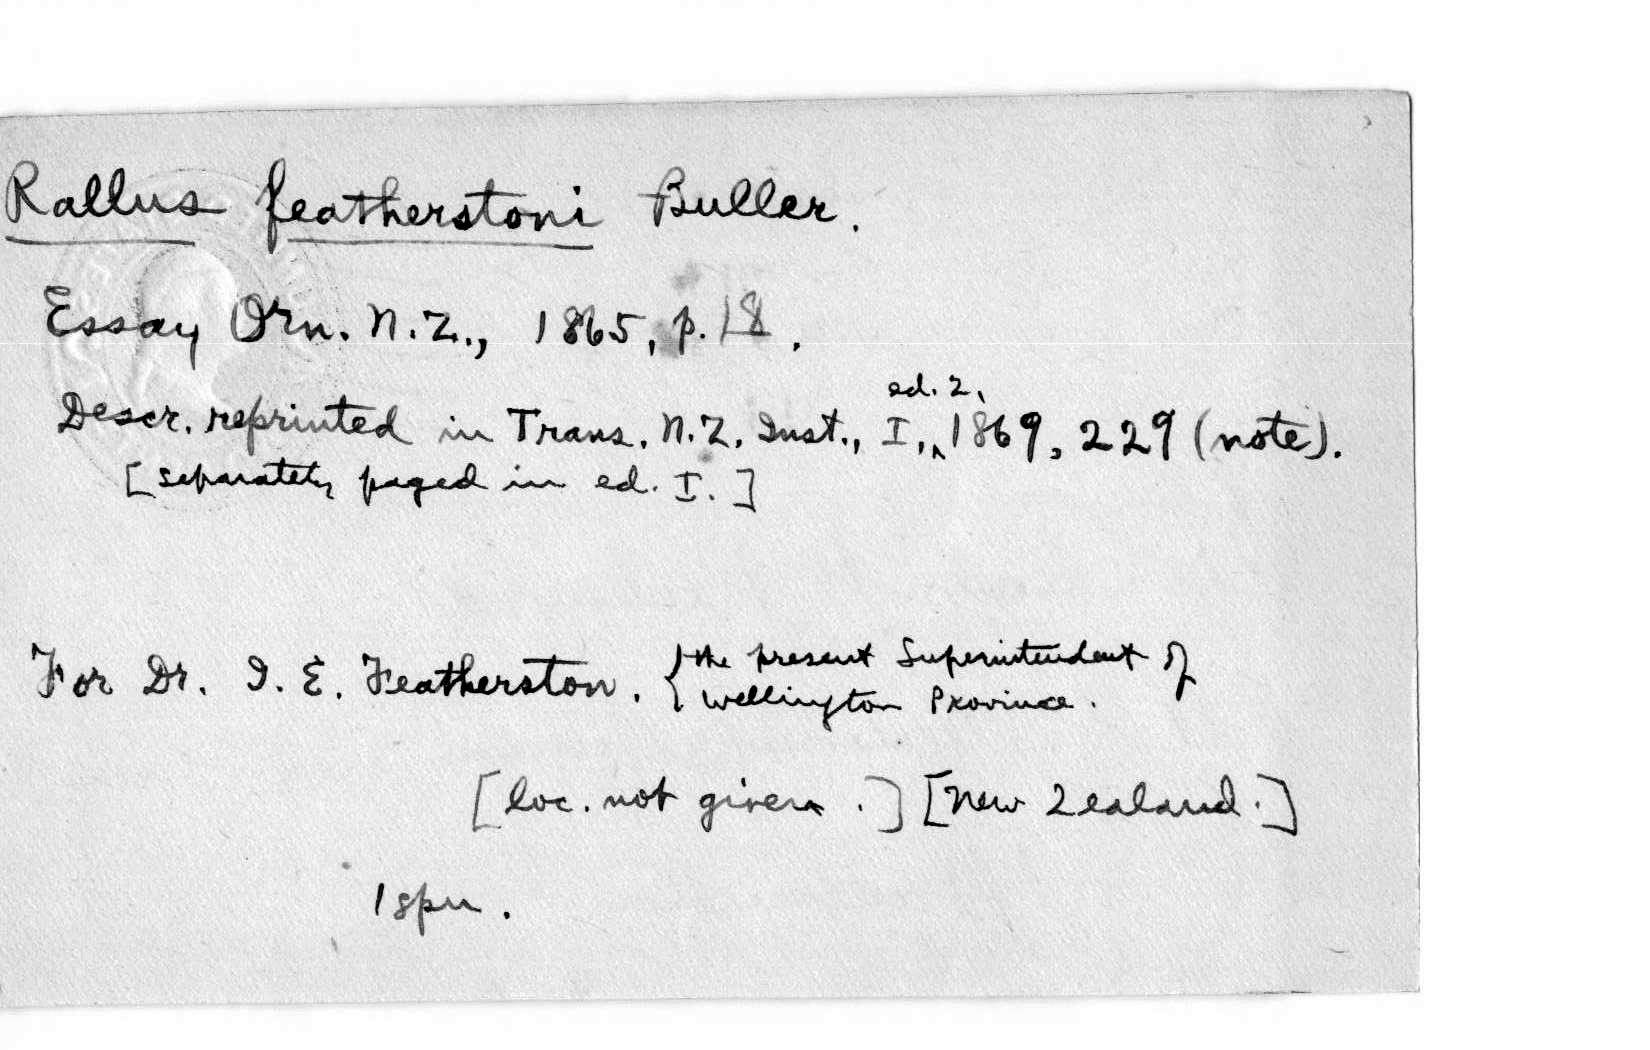 Rallus featherstoni Buller.
Essay Orn. N.Z., 1865, p. 18.
ed. 2,
Descr. reprinted in Trans. N.Z. Inst., I, ‸1869, 229 (note).
[separately paged in ed. I.]
For Dr. I. E. Featherston. {the present Superintendent of
Wellington Province.
[loc. not given.] [New Zealand.]
1 spn.